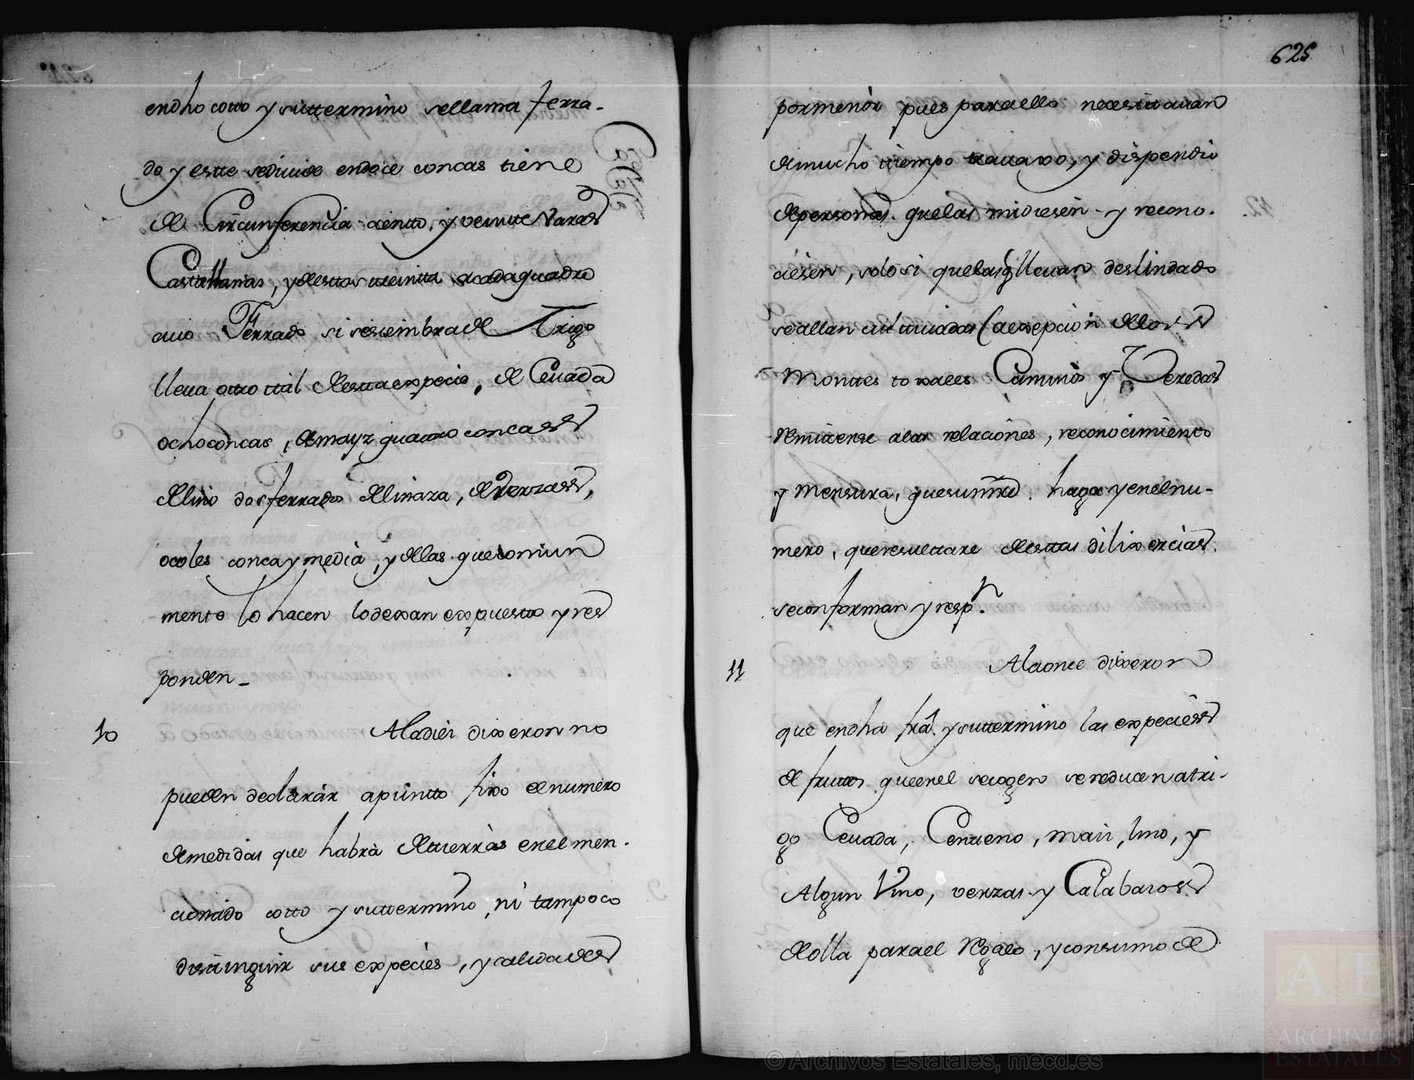 endho cotto y suttermino sellama ferra-
do y estte sedivide endoce concas tiene
de Circunferencia cientto, y veintte Varas
Castellanas, y destas tteintta acada quadro
cuio Ferrado si sesiembra de Trigo
lleva otro ttal destta especie, de Cevada
ocho concas, de mayz quattro concas
de lino dos ferrados de linaza, de verzas,
ocoles conca y media, y dellas que comun
mente lo hacen lo dexan expuestto y res
ponden_
10 A la diez dixeron no
pueden declarár apuntto fixo el numero
de medidas que habrà de tierràs en el men-
cionádo cotto y suttermino, ni tampoco
disttinguir sus expecies, y calidades
625
pormenór pues para ello necesitavan
de mucho ttiempo travaxo, y dispendio
de personas que las midiesen y recono-
ciesen, solo si que las q llevan deslindado
se allan cultivadas (a excepcion de los
Monttes to xales Caminos y Veredas
Remittense a las relaciones, reconocimiento
y Mensura, que su mrd. haga y en el nu-
mero, que resulttare de esttas dilixencias.
se conforman y resp.n
11 A la once dixeron
que endha frâ. y suttermino las expecies
de fruttos que en el se cogen se reducen a tri-
go Cevada, Centteno, maiz, lino, y
Algun Vino, verzas y Calabazos
de olla para el Regalo, y consumo de
© Archivos Estatales, mecd.es
AE
ARCHIVOS
ESTATALES